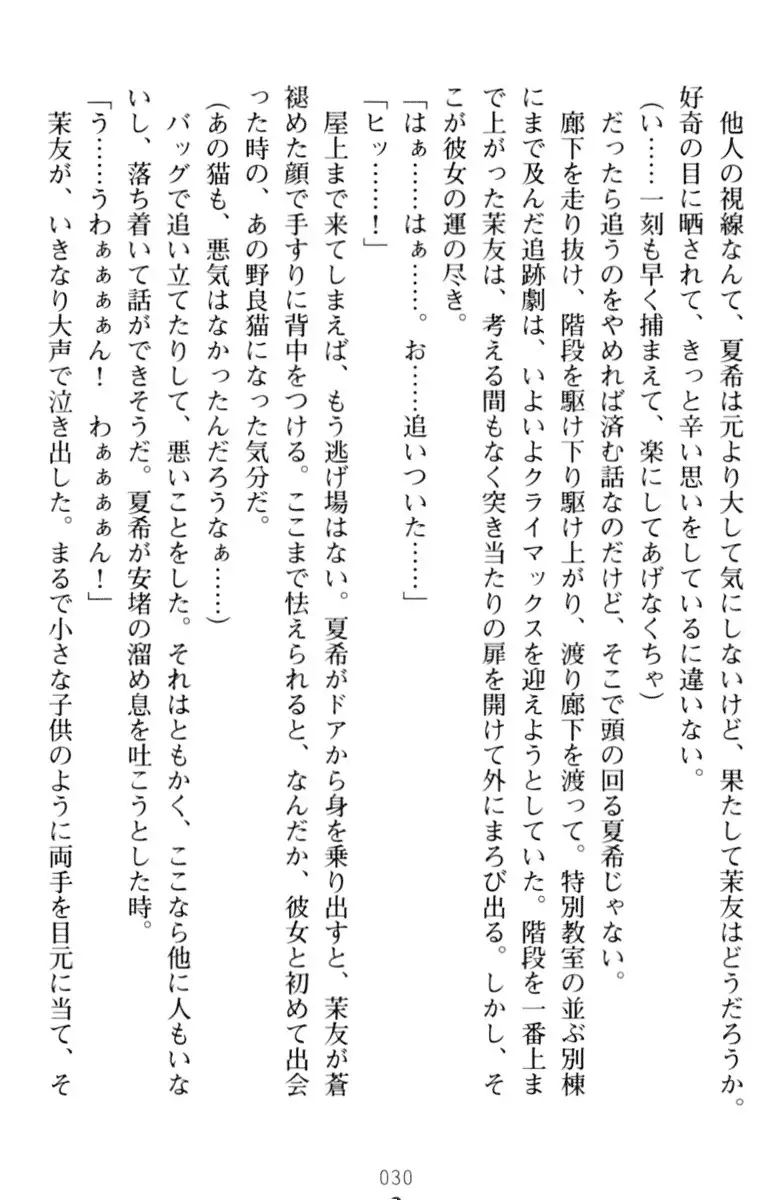 他人の視線なんて、夏希は元より大して気にしないけど、果たして茉友はどうだろうか。
好奇の目に晒されて、きっと辛い思いをしているに違いない。
(い……一刻も早く捕まえて、楽にしてあげなくちゃ)
だったら追うのをやめれば済む話なのだけど、そこで頭の回る夏希じゃない。
廊下を走り抜け、階段を駆け下り駆け上がり、渡り廊下を渡って。特別教室の並ぶ別棟
にまで及んだ追跡劇は、いよいよクライマックスを迎えようとしていた。階段を一番上ま
で上がった茉友は、考える間もなく突き当たりの扉を開けて外にまろび出る。しかし、そ
こが彼女の運の尽き。
「はぁ……はぁ……。お……追いついた……」
「ヒッ……!」
屋上まで来てしまえば、もう逃げ場はない。夏希がドアから身を乗り出すと、茉友が蒼
褪めた顔で手すりに背中をつける。ここまで怯えられると、なんだか、彼女と初めて出会
った時の、あの野良猫になった気分だ。
(あの猫も、悪気はなかったんだろうなぁ……)
バッグで追い立てたりして、悪いことをした。それはともかく、ここなら他に人もいな
いし、落ち着いて話ができそうだ。夏希が安堵の溜め息を吐こうとした時。
「う……うわぁぁぁぁん! わぁぁぁぁん!」
茉友が、いきなり大声で泣き出した。まるで小さな子供のように両手を目元に当て、そ
030